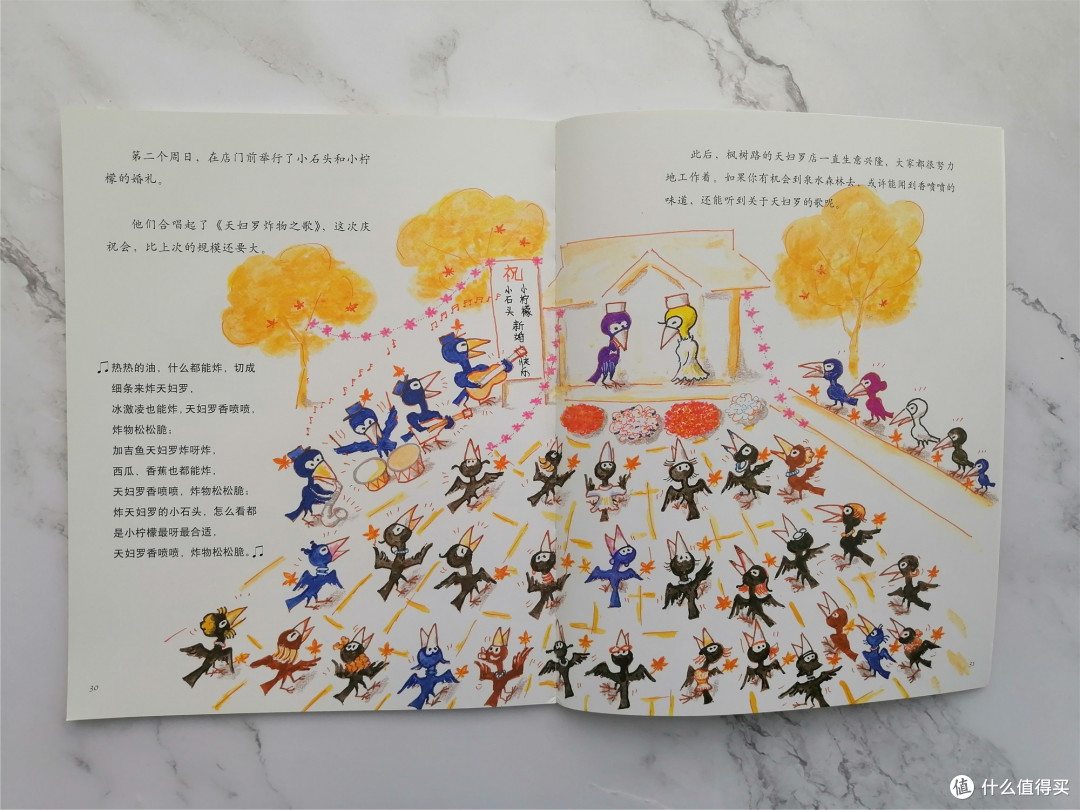 第二个周日，在店门前举行了小石头和小柠
檬的婚礼。
他们合唱起了《天妇罗炸物之歌》，这次庆
祝会，比上次的规模还要大。
热热的油，什么都能炸，切成
细条来炸天妇罗，
冰激凌也能炸，天妇罗香喷喷，
炸物松松脆；
加吉鱼天妇罗炸呀炸，
西瓜、香蕉也都能炸，
天妇罗香喷喷，炸物松松脆；
炸天妇罗的小石头，怎么看都
是小柠檬最呀最合适，
天妇罗香喷喷，炸物松松脆。
30
祝
小柠檬
小石头
新婚快乐
此后，枫树路的天妇罗店一直生意兴隆，大家都很努力
地工作着。如果你有机会到泉水森林去，或许能闻到香喷喷的
味道，还能听到关于天妇罗的歌呢。
31
值 什么值得买